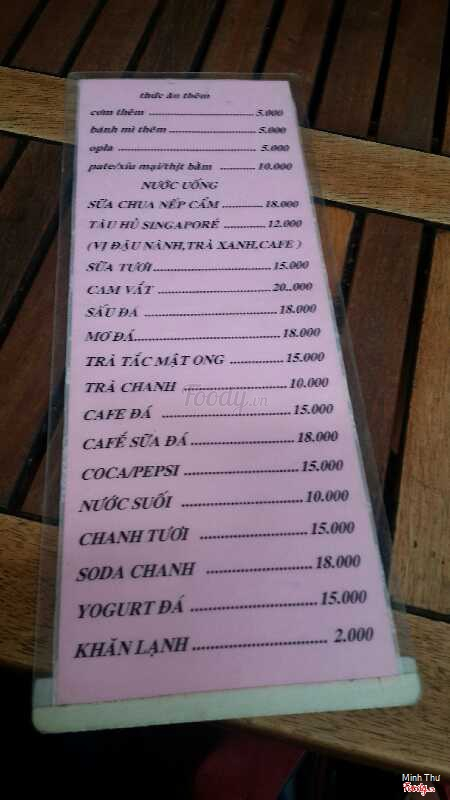 thức ăn thêm
cơm thêm ............................ 5.000
bánh mì thêm ........................ 5.000
opla ................................ 5.000
pate/xíu mại/thịt bằm .......... 10.000
NƯỚC UỐNG
SỮA CHUA NẾP CẨM ............ 18.000
TÀU HỦ SINGAPORÉ ............ 12.000
(VỊ ĐẬU NÀNH,TRÀ XANH,CAFE )
SỮA TƯƠI ............................ 15.000
CAM VẮT ............................ 20..000
SẤU ĐÁ ............................ 18.000
MƠ ĐÁ............................ 18.000
TRÀ TẮC MẬT ONG .............. 15.000
TRÀ CHANH ........................ 10.000
CAFE ĐÁ ............................ 15.000
CAFÉ SỮA ĐÁ........................ 18.000
COCA/PEPSI ........................ 15.000
NƯỚC SUỐI ........................ 10.000
CHANH TƯƠI ...................... 15.000
SODA CHANH ...................... 18.000
YOGURT ĐÁ ........................ 15.000
KHĂN LẠNH ........................ 2.000
Foody.vn
Minh Thư
Foody.vn